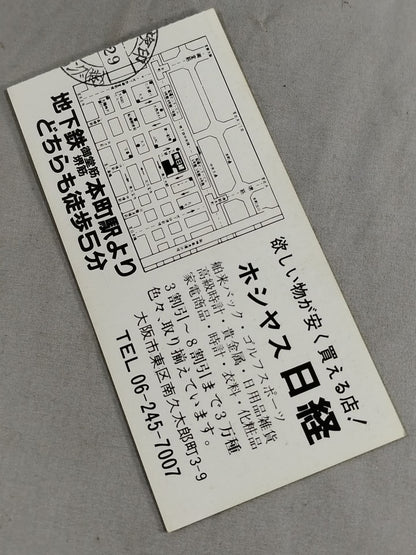 欲しい物が安く買える店!
ホシヤス 日経
舶来バック・ゴルフスポーツ
高級時計・貴金属・日用品雑貨
家電商品・時計・衣料・化粧品
3割引～8割引まで3万種
色々、取り揃えています。
大阪市東区南久太郎町3-9
TEL 06-245-7007
地下鉄 御堂筋 堺筋 本町駅より
どちらも徒歩5分
29